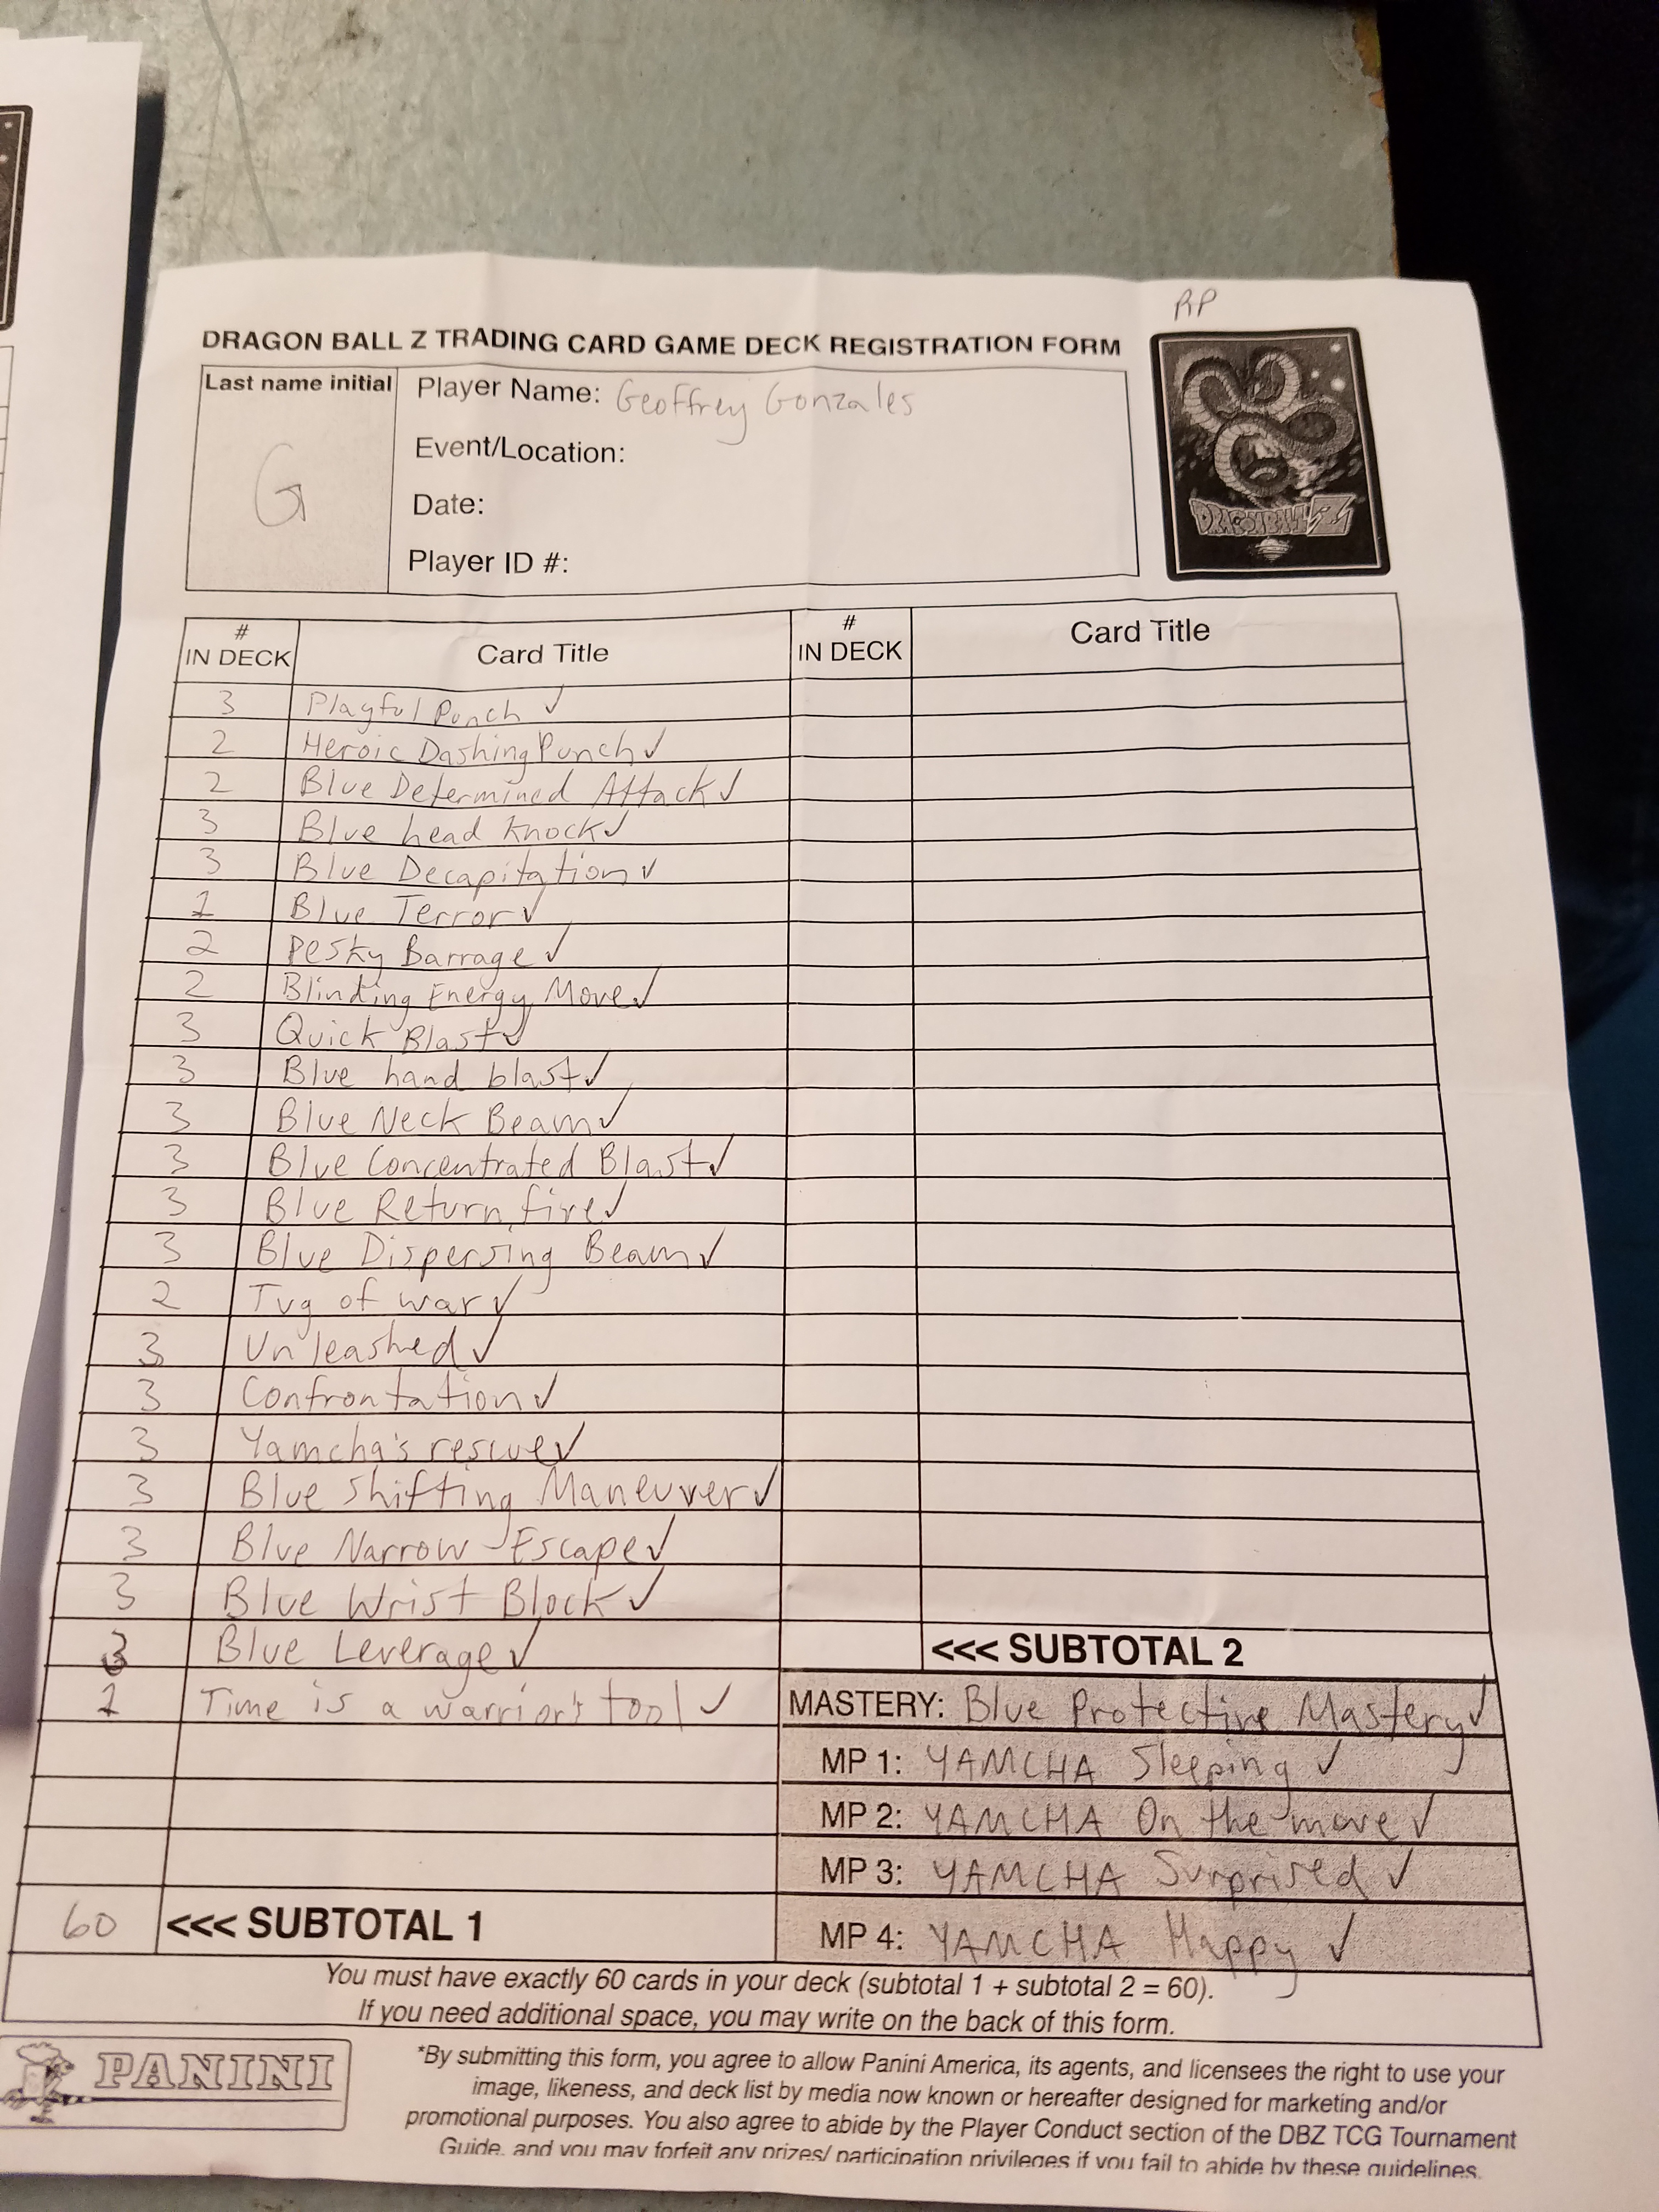 RP
DRAGON BALL Z TRADING CARD GAME DECK REGISTRATION FORM
Last name initial
G
Player Name: Geoffrey Gonzales
Event/Location:
Date:
Player ID #:
DRAGONBALL Z
# IN DECK Card Title # IN DECK Card Title
3 Playful Punch ✓
2 Heroic Dashing Punch ✓
2 Blue Determined Attack ✓
3 Blue head knock ✓
3 Blue Decapitation ✓
1 Blue Terror ✓
2 Pesky Barrage ✓
2 Blinding Energy Move ✓
3 Quick Blast ✓
3 Blue hand blast ✓
3 Blue Neck Beam ✓
3 Blue Concentrated Blast ✓
3 Blue Return fire ✓
3 Blue Dispersing Beam ✓
2 Tug of war ✓
3 Unleashed ✓
3 Confrontation ✓
3 Yamcha's rescue ✓
3 Blue Shifting Maneuver ✓
3 Blue Narrow Escape ✓
3 Blue Wrist Block ✓
3 Blue Leverage ✓
1 Time is a warrior's tool ✓
60 <<< SUBTOTAL 1
<<< SUBTOTAL 2
MASTERY: Blue Protective Mastery ✓
MP 1: YAMCHA Sleeping ✓
MP 2: YAMCHA On the move ✓
MP 3: YAMCHA Surprised ✓
MP 4: YAMCHA Happy ✓
You must have exactly 60 cards in your deck (subtotal 1 + subtotal 2 = 60).
If you need additional space, you may write on the back of this form.
PANINI
*By submitting this form, you agree to allow Panini America, its agents, and licensees the right to use your
image, likeness, and deck list by media now known or hereafter designed for marketing and/or
promotional purposes. You also agree to abide by the Player Conduct section of the DBZ TCG Tournament
Guide, and you may forfeit any prizes/ participation privileges if you fail to abide by these guidelines.